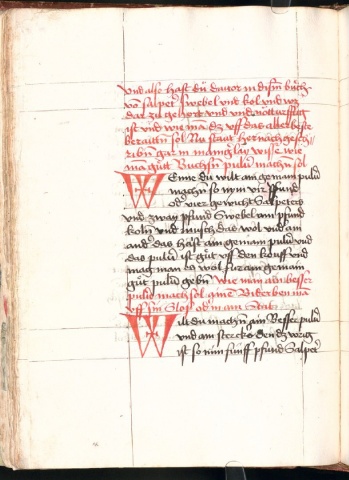 vnd also hast du dauor in disem buͦch
võ salpeter Swebel vnd kol vnd wz
dar zuͦ gehort vnd vnd notturfftig
ist vnd wie mã dz vff das aller beste
beraitten sol Nu staat hernach gesch
riben gar in mengerlay wisse wie
man guͦt Buchsen puluer machen sol
Wenne du wilt ain gemain puluer
machen so nym vier pfund
oder vier gewicht Salpeters
vnd zway pfund Swebel ain pfund
koln vnd misch das wol vnder ain
ander das haist ain gemain puluer vnd
das puluer ist guͦt vff den kouff vnd
mag man es wol für ain gemain
guͦt puluer geben Wie man ain besser
puluer machen sol ainem Biderben mã
vff sin Sloss oder in ain Statt
Wilt du machen ain Besser puluer
vnd ain stercker den dz vorig
ist so nim fünff pfund Salpeter